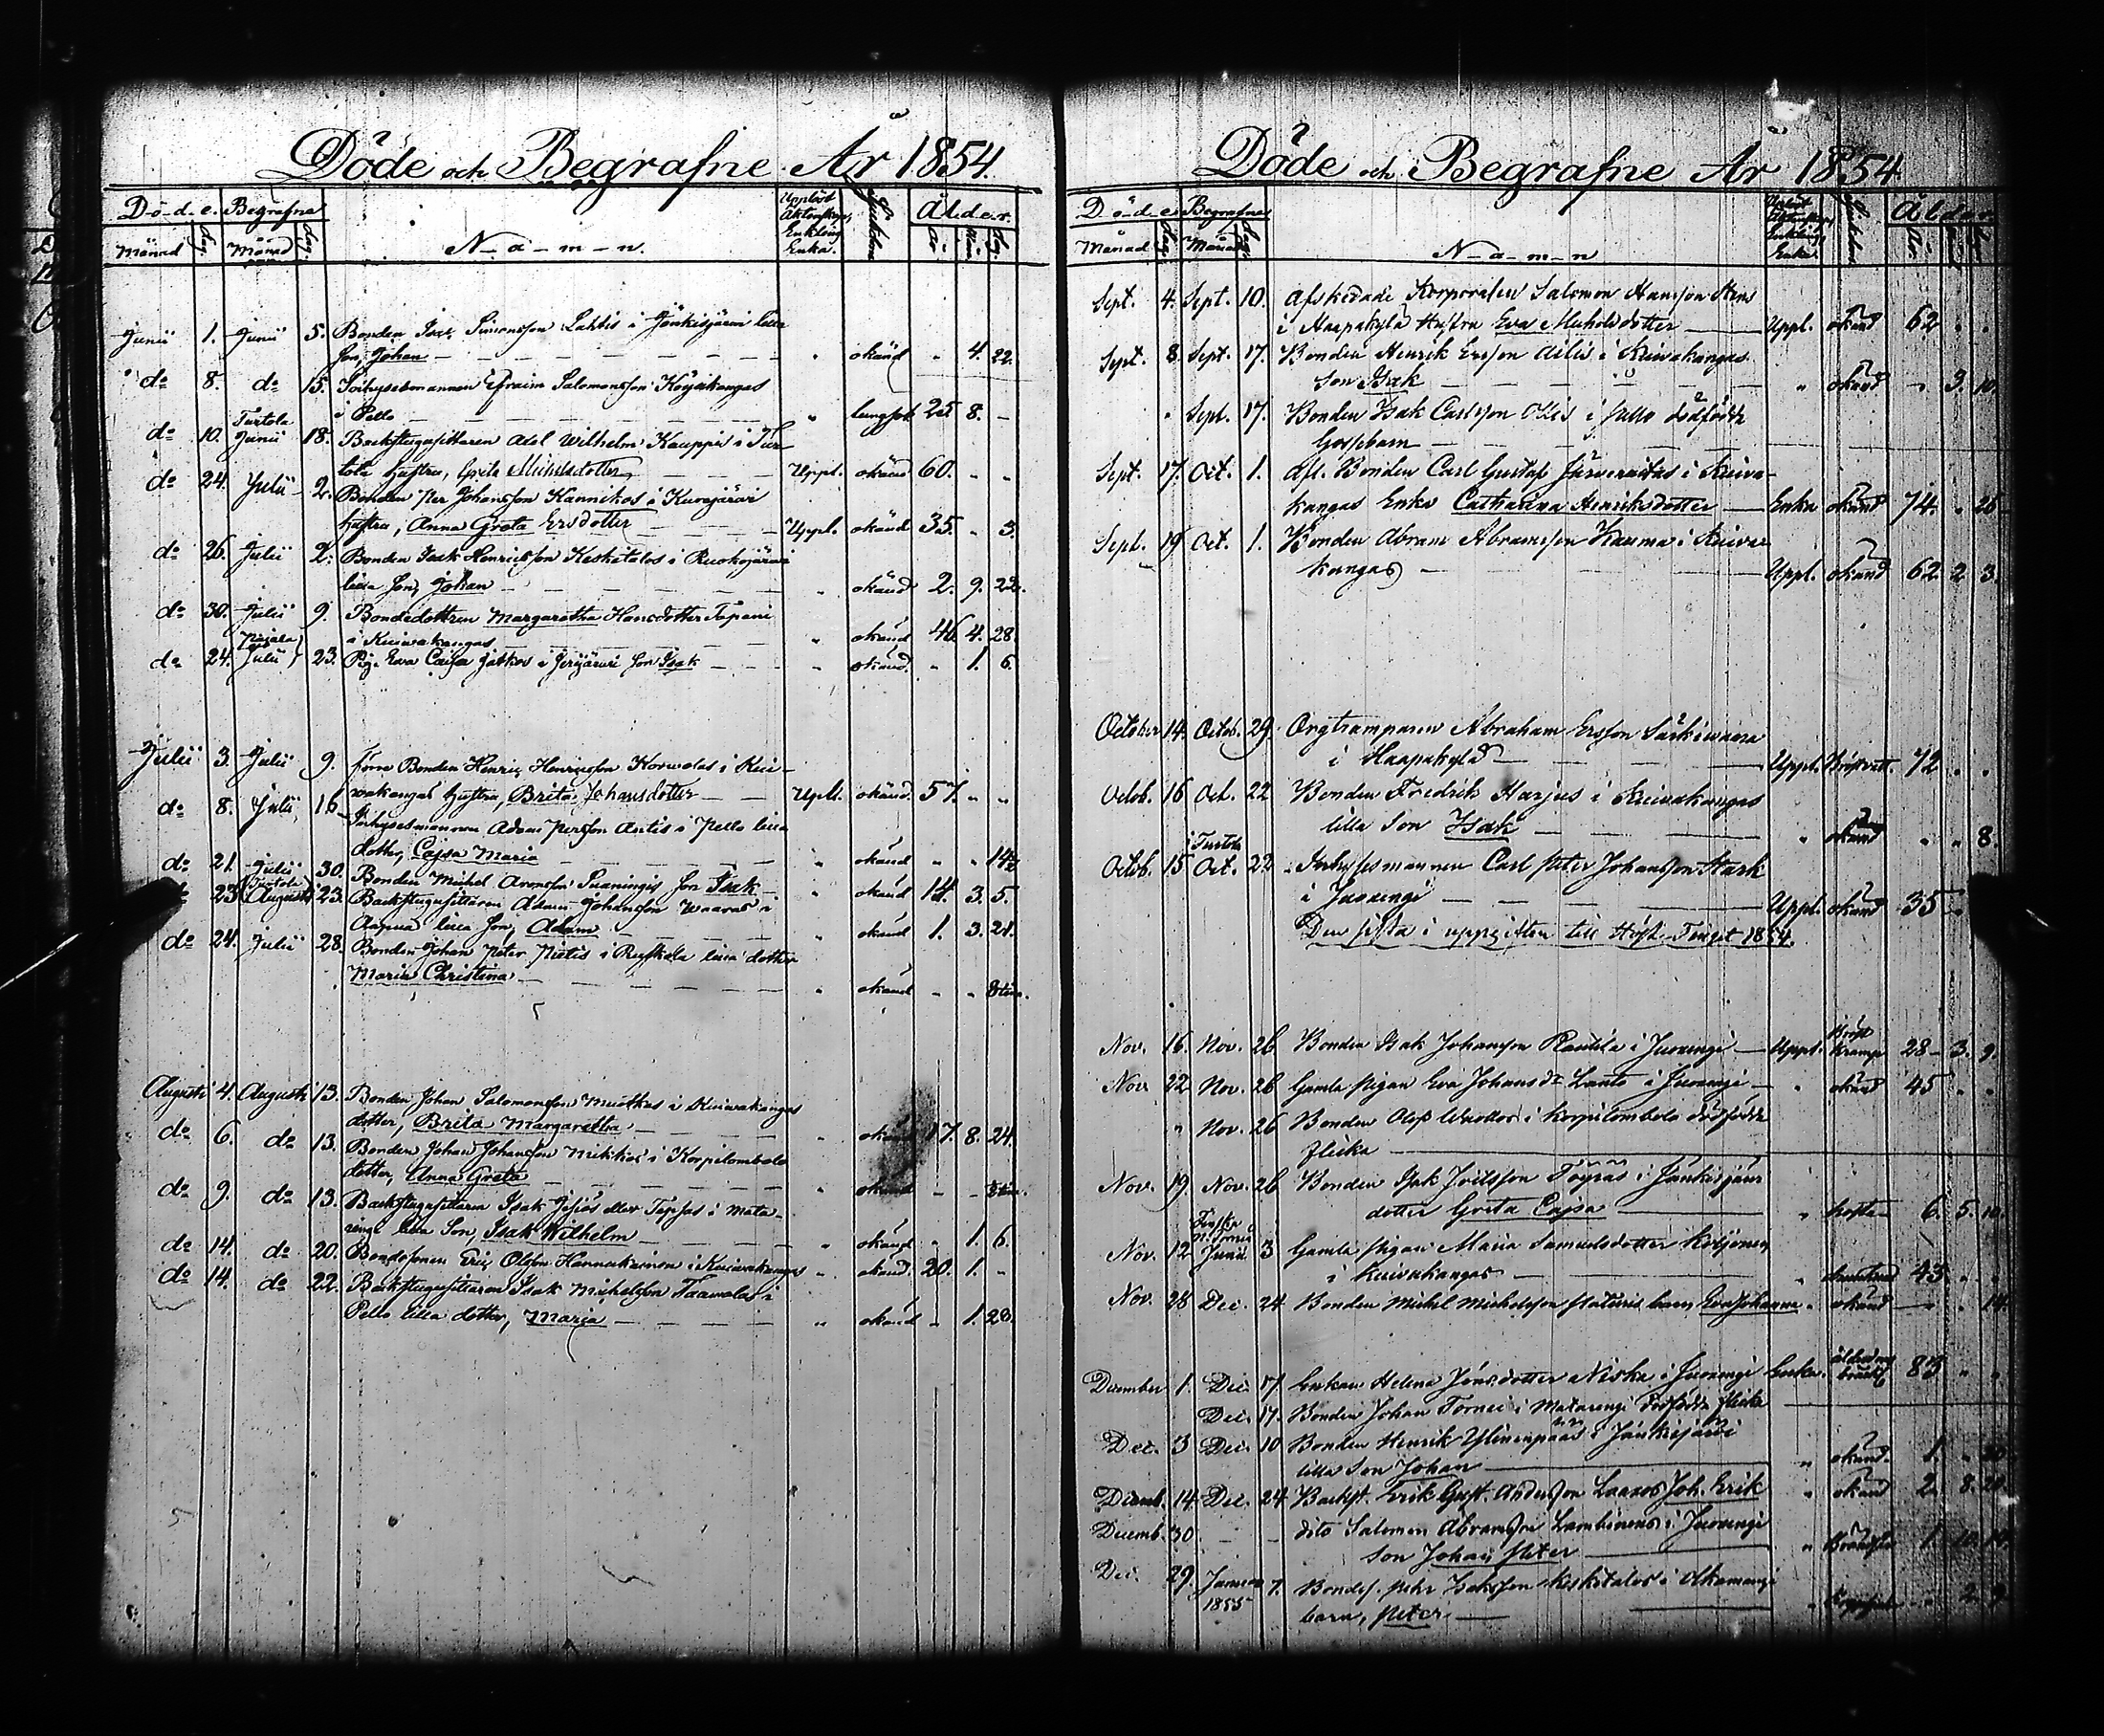 Döde och Begrafne År 1854.
Döde. Begrafne N-a-m-n. Upplöst Äktenskap, Enkling Enka. Sjukdom Ålder.
Månad dag. Månad dag. År. Mån. dag.
Junii 1. Junii 5. Bonden Isac Simonsson Lahtis i Jänkisjärvi lilla
son, Johan — okänd " 4. 22.
do 8. do 15. Inhysesmannen Efraim Salomonsson Köysikangas
i Pello — " lungsot 25 8. -
do 10. Turtola Junii 18. Backstugusittaren Axel Wilhelm Kauppi i Tur-
tola hustru, Greta Michelsdotter Uppl. okänd 60. - -
do 24. Julii 2. Bonden Per Johansson Kannikos i Kuresjärvi
hustru, Anna Greta Ersdotter Uppl. okänd 35. - 3.
do 26. Julii 2. Bonden Isak Henricsson Keskitalos i Ruokojärvi
lilla son, Johan — okänd 2. 9. 22.
do 30. Julii 9. Bondedottren Margaretha Hansdotter Tapani
i Kuivakangas — " okänd 46. 4. 28.
do 24. Pajala Julii 23. Pig. Eva Cajsa Jatkos i Jerijärvi son Isak — " okänd. " 1. 6.
Julii 3. Julii 9. förre Bonden Henric Henricsson Korwolas i Kui-
wakangas hustru, Brita Johansdotter — Uppl. okänd. 57. " "
do 8. Julii 16. Inhysesmannen Adam Persson Antis i Pello lilla
dotter, Cajsa Maria — " okänd - - 14
do 21. Julii 30. Bonden Michel Aronsson Puaningis son Isak — " okänd 14. 3. 5.
do 23 Turtola Augusti 23. Backstugusittaren Adam Johansson Waaras i
lilla son, Adam — " okänd 1. 3. 21.
do 24. Julii 28. Bonden Johan Peter Pietis i Ruskola lilla dotter
Maria Christina — " okänd - - 8 tim.
Augusti 4. Augusti 13. Bonden Johan Salomonsson Muotkas i Kuivakangas
dotter, Brita Margaretha — " okänd 17. 8. 24.
do 6. do 13. Bonden Johan Johansson Mikkos i Korpilombolo
dotter, Anna Greta — " okänd - - tim.
do 9. do 13. Backstugusittaren Isak eller i Mata-
rengi lilla Son, Isak Wilhelm — " okänd - 1. 6.
do 14. do 20. Bondesonen Eric Olsson Hannukainen i Kuivakangas " okänd. 20. 1. -
do 14. do 22. Backstugusittaren Isak Michelsson Taawolas i
Pello lilla dotter, Maria — " okänd - 1. 28.
Döde och Begrafne År 1854
Döde. Begrafne N-a-m-n Upplöst Äktenskap, Enkling, Enka Sjukdom Ålder.
Månad dag. Månad dag. År. Mån. dag.
Sept. 4. Sept. 10. Afskedade Korporalen Salomon Hansson Stens
i Haapakylä Hustru Eva Michelsdotter — Uppl. okänd 62 . .
Sept. 8. Sept. 17. Bonden Henrik Ersson Ailis i Kuivakangas
son Isak — " okänd " 3. 10.
" Sept. 17. Bonden Isak Carlsson Ollis i Pello dödfödt
Gossebarn —
Sept. 17. Oct. 1. Afl. Bonden Carl Gustaf Järvenaitas i Kuiva-
kangas Enka Catharina Henriksdotter — Enka okänd 74. . 26
Sept. 19 Oct. 1. Bonden Abram Abramsson Kauma i Kuiva-
kangas — Uppl. okänd 62. 2 3.
October 14. Octob. 29. Orgtramparen Abraham Ersson Särkiwaara
i Haapakylä — Uppl. Bröstvatt. 72 . .
Octob. 16 Oct. 22 Bonden Fredrik Harjus i Kuivakangas
lilla Son Isak — " okänd " . 8.
Octob. 15 i Turtola Oct. 22 Inhysesmannen Carl Peter Johansson Stark
i Juoxengi — Uppl. okänd 35
Den sista i uppgiften till Höst-Tinget 1854.
Nov. 16. Nov. 26 Bonden Isak Johansson Rautila i Juoxengi — Uppl. Bröst Kramp 28 - 3. 9.
Nov 22 Nov. 26 Gamla pigan Eva Johansdr Lanto i Juoxengi — " okänd 45 . .
" Nov. 26 Bonden Olof i Korpilombolo dödfödt
flicka —
Nov. 19. Nov. 26 Bonden Isak Töyräs i Jänkisjärvi
dotter Greta Cajsa — " hosta 6. 5. 10.
Nov. 12 Finska N. Torneå Junii 3 Gamla pigan Maria Samuelsdotter
i Kuivakangas — " drunknad 43 . .
Nov. 28 Dec. 24 Bonden Michel Michelsson barn, Eva Johanna " okänd — . 14.
December 1. Dec. 17 Enkan Helena Jönsdotter Niska i Juoxengi Enka. ålderdoms bräckl. 83 . .
Dec. 17. Bonden Johan Tornei i Matarengi dödfödt flicka
Dec. 3 Dec. 10 Bonden Henrik Ylinenpääs i Jänkisjärvi
lilla son Johan — " okänd. 1. . 20
Decemb. 14 Dec. 24 Backst. Erik Gust. Andersson Laaxos Joh. Erik " okänd 2. 8. 20.
Decemb. 30 - - dito Salomon Abramsson Lambinens i Juoxengi
son Johan Peter — " 1. 10.
Dec. 29 Januari 1855 7. Bondes. Pehr Isaksson Keskitalos i Alkamangi
barn, Peter — " " 2. 9